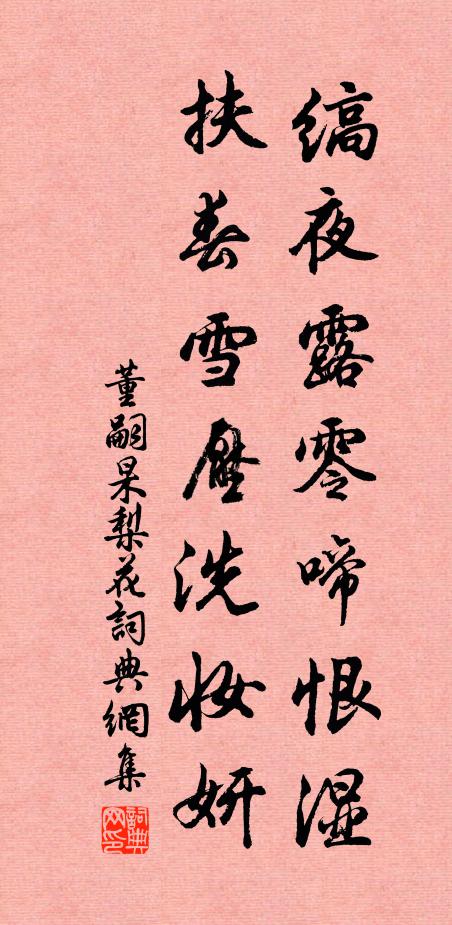 缟夜露零啼恨湿
扶春雪壓洗妆妍
董嗣杲梨花詞典網集
詞典网印